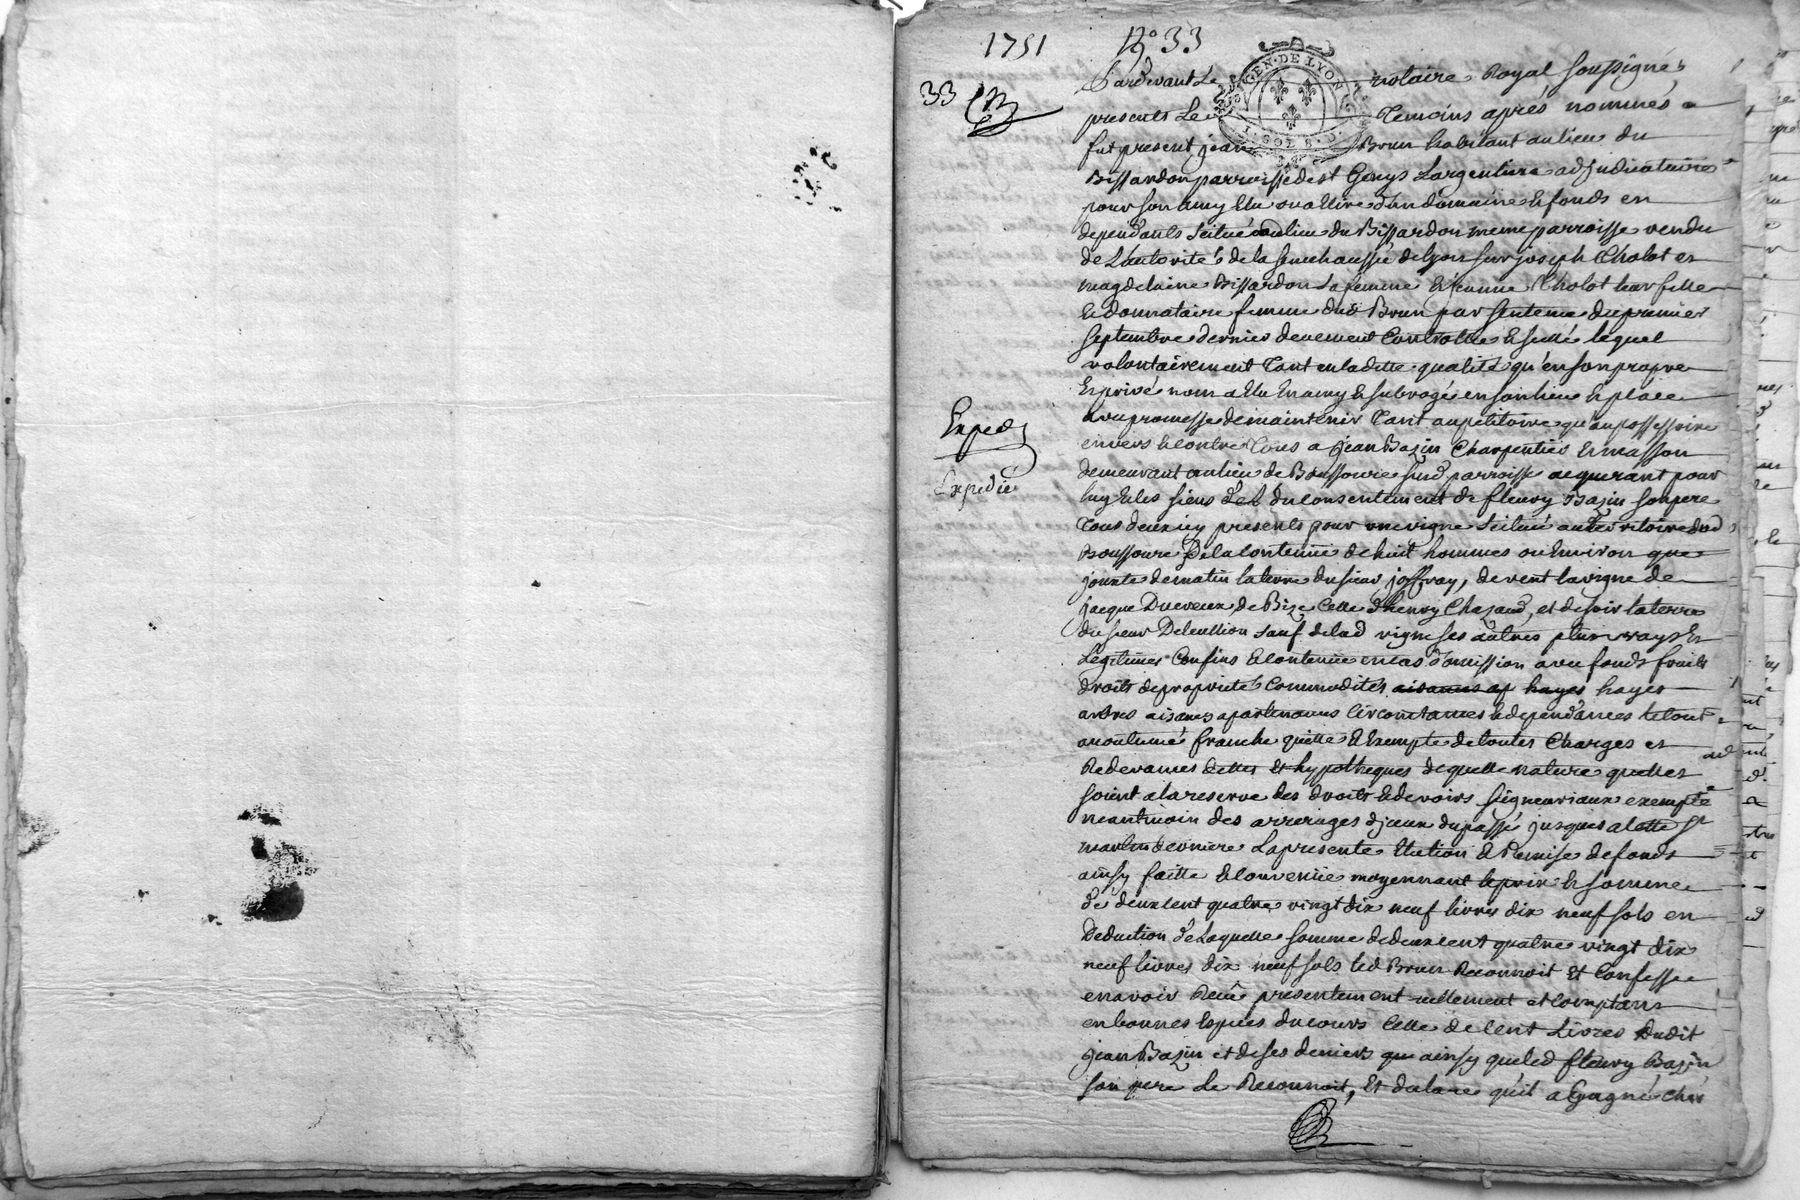 1751 N° 33
33
GEN · DE LYON
SOLS
Pardevant Le notaire Royal soussigné
presents Les Temoins aprés nommés
fut present jean Brun habitant au lieu du
Bissardon parroisse de st Genys Largentiere adjudicataire
pour son amy Elu ou a Elire d'un domaine & fonds en
dependants scitué au lieu du Bissardon meme parroisse vendu
de L'autorité de la senechaussée de lyon sur joseph Cholot et
magdelaine Bissardon sa femme & jeanne Cholot leur fille
& donnataire femme dud Brun par sentence du premier
septembre dernier deuement Controllée & scellé lequel
volontairement Tant en laditte qualité qu'en son propre
& privé nom a Elu en amy & subrogé en son lieu & place
avec promesse de maintenir Tant au petitoire qu'au possessoire
envers & contre Tous a jean Bazin Charpentier & masson
demeurant au lieu de Boussoure susd parroisse acquerant pour
luy & les siens de L du consentement de fleury Bazin son pere
Tous deux icy presents pour une vigne scitué au territoire dud
Boussoure De la contenüe de huit hommes ou Environ que
jouxte de matin la terre du sieur joffray, de vent la vigne de
jacque Duvereux de Bize Celle d'henry Chazaud, et de soir la terre
du sieur Deleullion sauf de lad vigne ses autres plus vrays &
Légitimes Confins & contenüe en cas d'omission avec fonds fruits
droits de propriete Commodités aisances ap hayes hayes
arbres aisances apartenances circonstances & dependances le tout
anoutumé franche quitte & Exempte de toutes Charges et
Redevances dettes et hypotheques de quelle nature quelles
soient a la reserve des droits & devoirs seigneuriaux exempte
neantmoin des arrerages d'jceux du passé jusques a la fette st
martin derniere La presente Election & Remise de fonds
ainsy faitte & convenüe moyennant le prix & somme
de deux cent quatre vingt dix neuf livres dix neuf sols en
Deduction de Laquelle somme de deux cent quatre vingt dix
neuf livres dix neuf sols led Brun Reconnoit et Confesse
en avoir Receu presentement reellement et comptant
en bonnes Espèces du cours Celle de Cent Livres Dudit
jean Bazin et de ses deniers que ainsy que led fleury Bazin
son pere Le Reconnoit, et declare qu'il a Gagné chés
Exped
Expedié